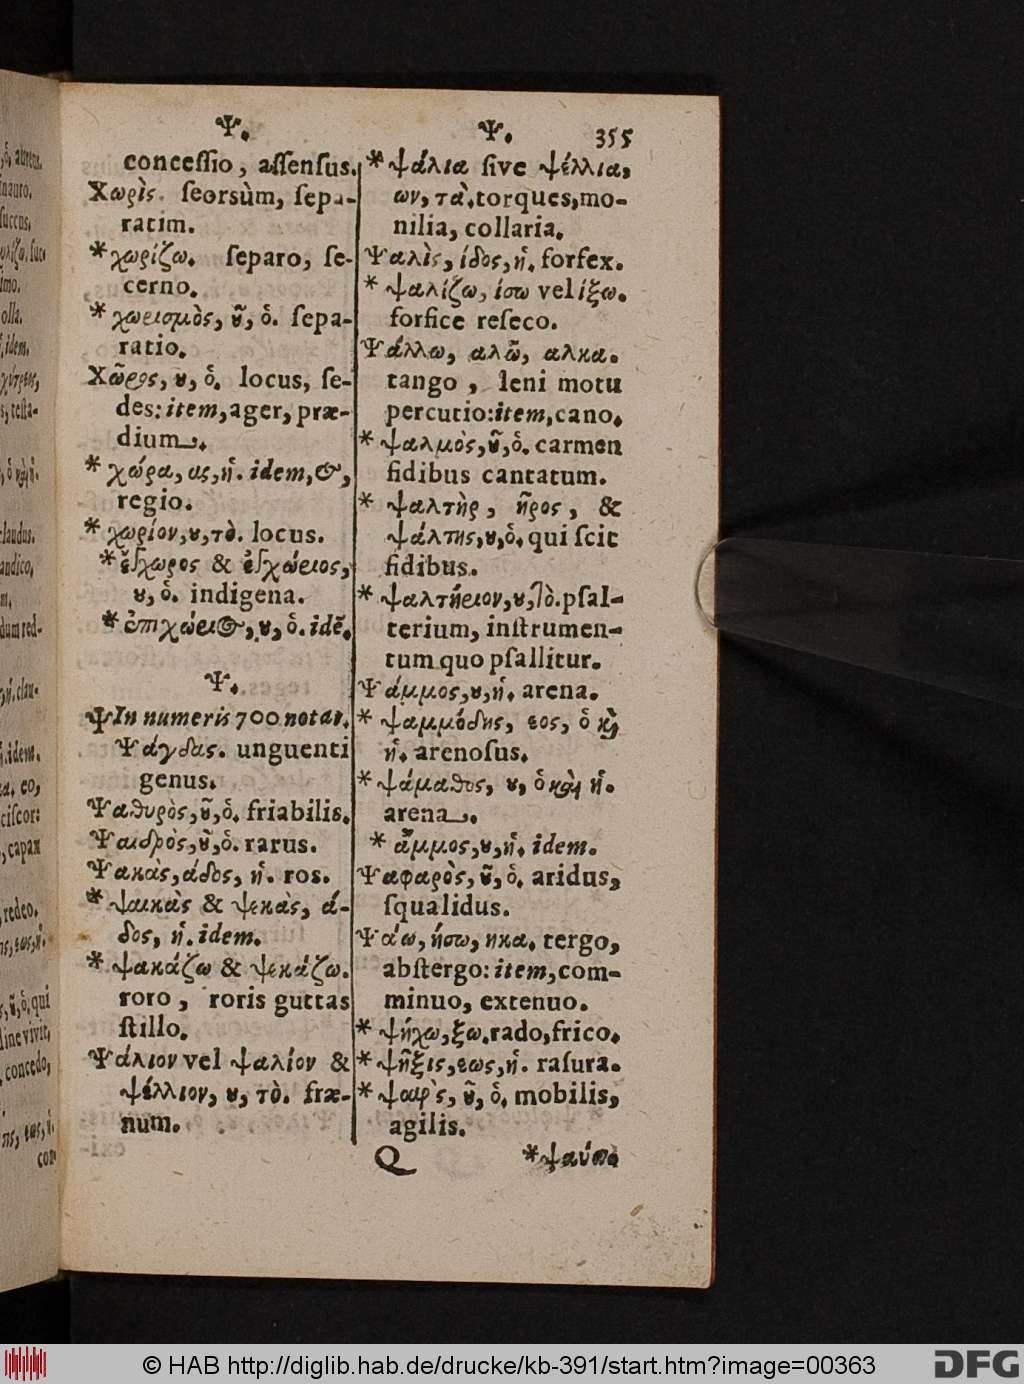 Ψ.
conceſſio, aſſenſus.
Χωρὶς. ſeorsùm, ſepa-
ratim.
*χωρίζω. ſeparo, ſe-
cerno.
*χωρισμὸς, ȣ͂, ὁ. ſepa-
ratio.
Χῶρος, ȣ, ὁ. locus, ſe-
des: item, ager, præ-
dium.
*χώρα, ας, ἡ. idem, &,
regio.
*χωρίον, ȣ, τὸ. locus.
*ἔγχωρος & ἐγχώριος,
ȣ, ὁ. indigena.
*ἐπιχώριος, ȣ, ὁ. idē.
Ψ.
Ψ In numeris 700 notat.
Ψάγδας. unguenti
genus.
Ψαθυρὸς, ȣ͂, ὁ. friabilis.
Ψαιδρὸς, ȣ͂, ὁ. rarus.
Ψακὰς, άδος, ἡ. ros.
*ψαικὰς & ψεκὰς, ά-
δος, ἡ. idem.
*ψακάζω & ψεκάζω.
roro, roris guttas
ſtillo.
Ψάλιον vel ψαλίον &
ψέλλιον, ȣ, τὸ. fræ-
num.
Ψ. 355
*ψάλια ſive ψέλλια,
ων, τὰ. torques, mo-
nilia, collaria.
Ψαλὶς, ίδος, ἡ. forfex.
*ψαλίζω, ίσω vel ίξω.
forfice reſeco.
Ψάλλω, αλῶ, αλκα.
tango, leni motu
percutio: item, cano.
*ψαλμὸς, ȣ͂, ὁ. carmen
fidibus cantatum.
*ψαλτὴρ, ῆρος, &
ψάλτης, ȣ, ὁ. qui ſcit
fidibus.
*ψαλτήριον, ȣ, τὸ. pſal-
terium, inſtrumen-
tum quo pſallitur.
Ψάμμος, ȣ, ἡ. arena.
*ψαμμώδης, εος, ὁ καὶ
ἡ. arenoſus.
*ψάμαθος, ȣ, ὁ καὶ ἡ.
arena.
*ἄμμος, ȣ, ἡ. idem.
Ψαφαρὸς, ȣ͂, ὁ. aridus,
ſqualidus.
Ψάω, ήσω, ηκα. tergo,
abſtergo: item, com-
minuo, extenuo.
*ψήχω, ξω. rado, frico.
*ψῆξις, εως, ἡ. raſura.
*ψαιρὸς, ȣ͂, ὁ. mobilis,
agilis.
Q *ψαύω
© HAB http://diglib.hab.de/drucke/kb-391/start.htm?image=00363
DFG